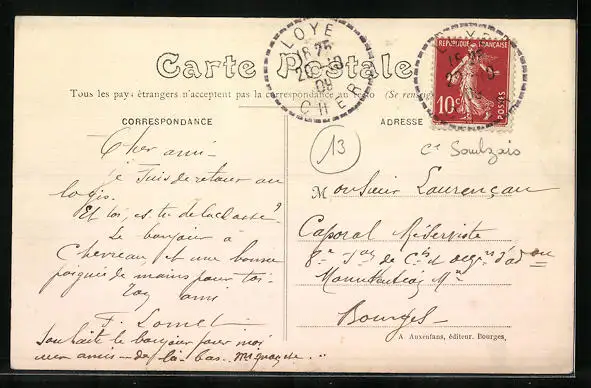 Carte Postale
Tous les pays étrangers n'acceptent pas la correspondance au recto (Se renseig
CORRESPONDANCE
ADRESSE
LOYE
CHER
09
REPUBLIQUE FRANÇAISE
10c
POSTES
13
Cher ami-
je suis de retour au
logis.
Et toi, es-tu de la classe?
Le bonjour à
Chevreau, et une bonne
poignée de mains pour toi-
Ton ami
souhaite le bonjour pour moi
aux amis - de là-bas.
Monsieur Laurençau
Caporal Réserviste
8e
de Cis et
d'ad
Bourges-
A. Auxenfans, éditeur. Bourges,